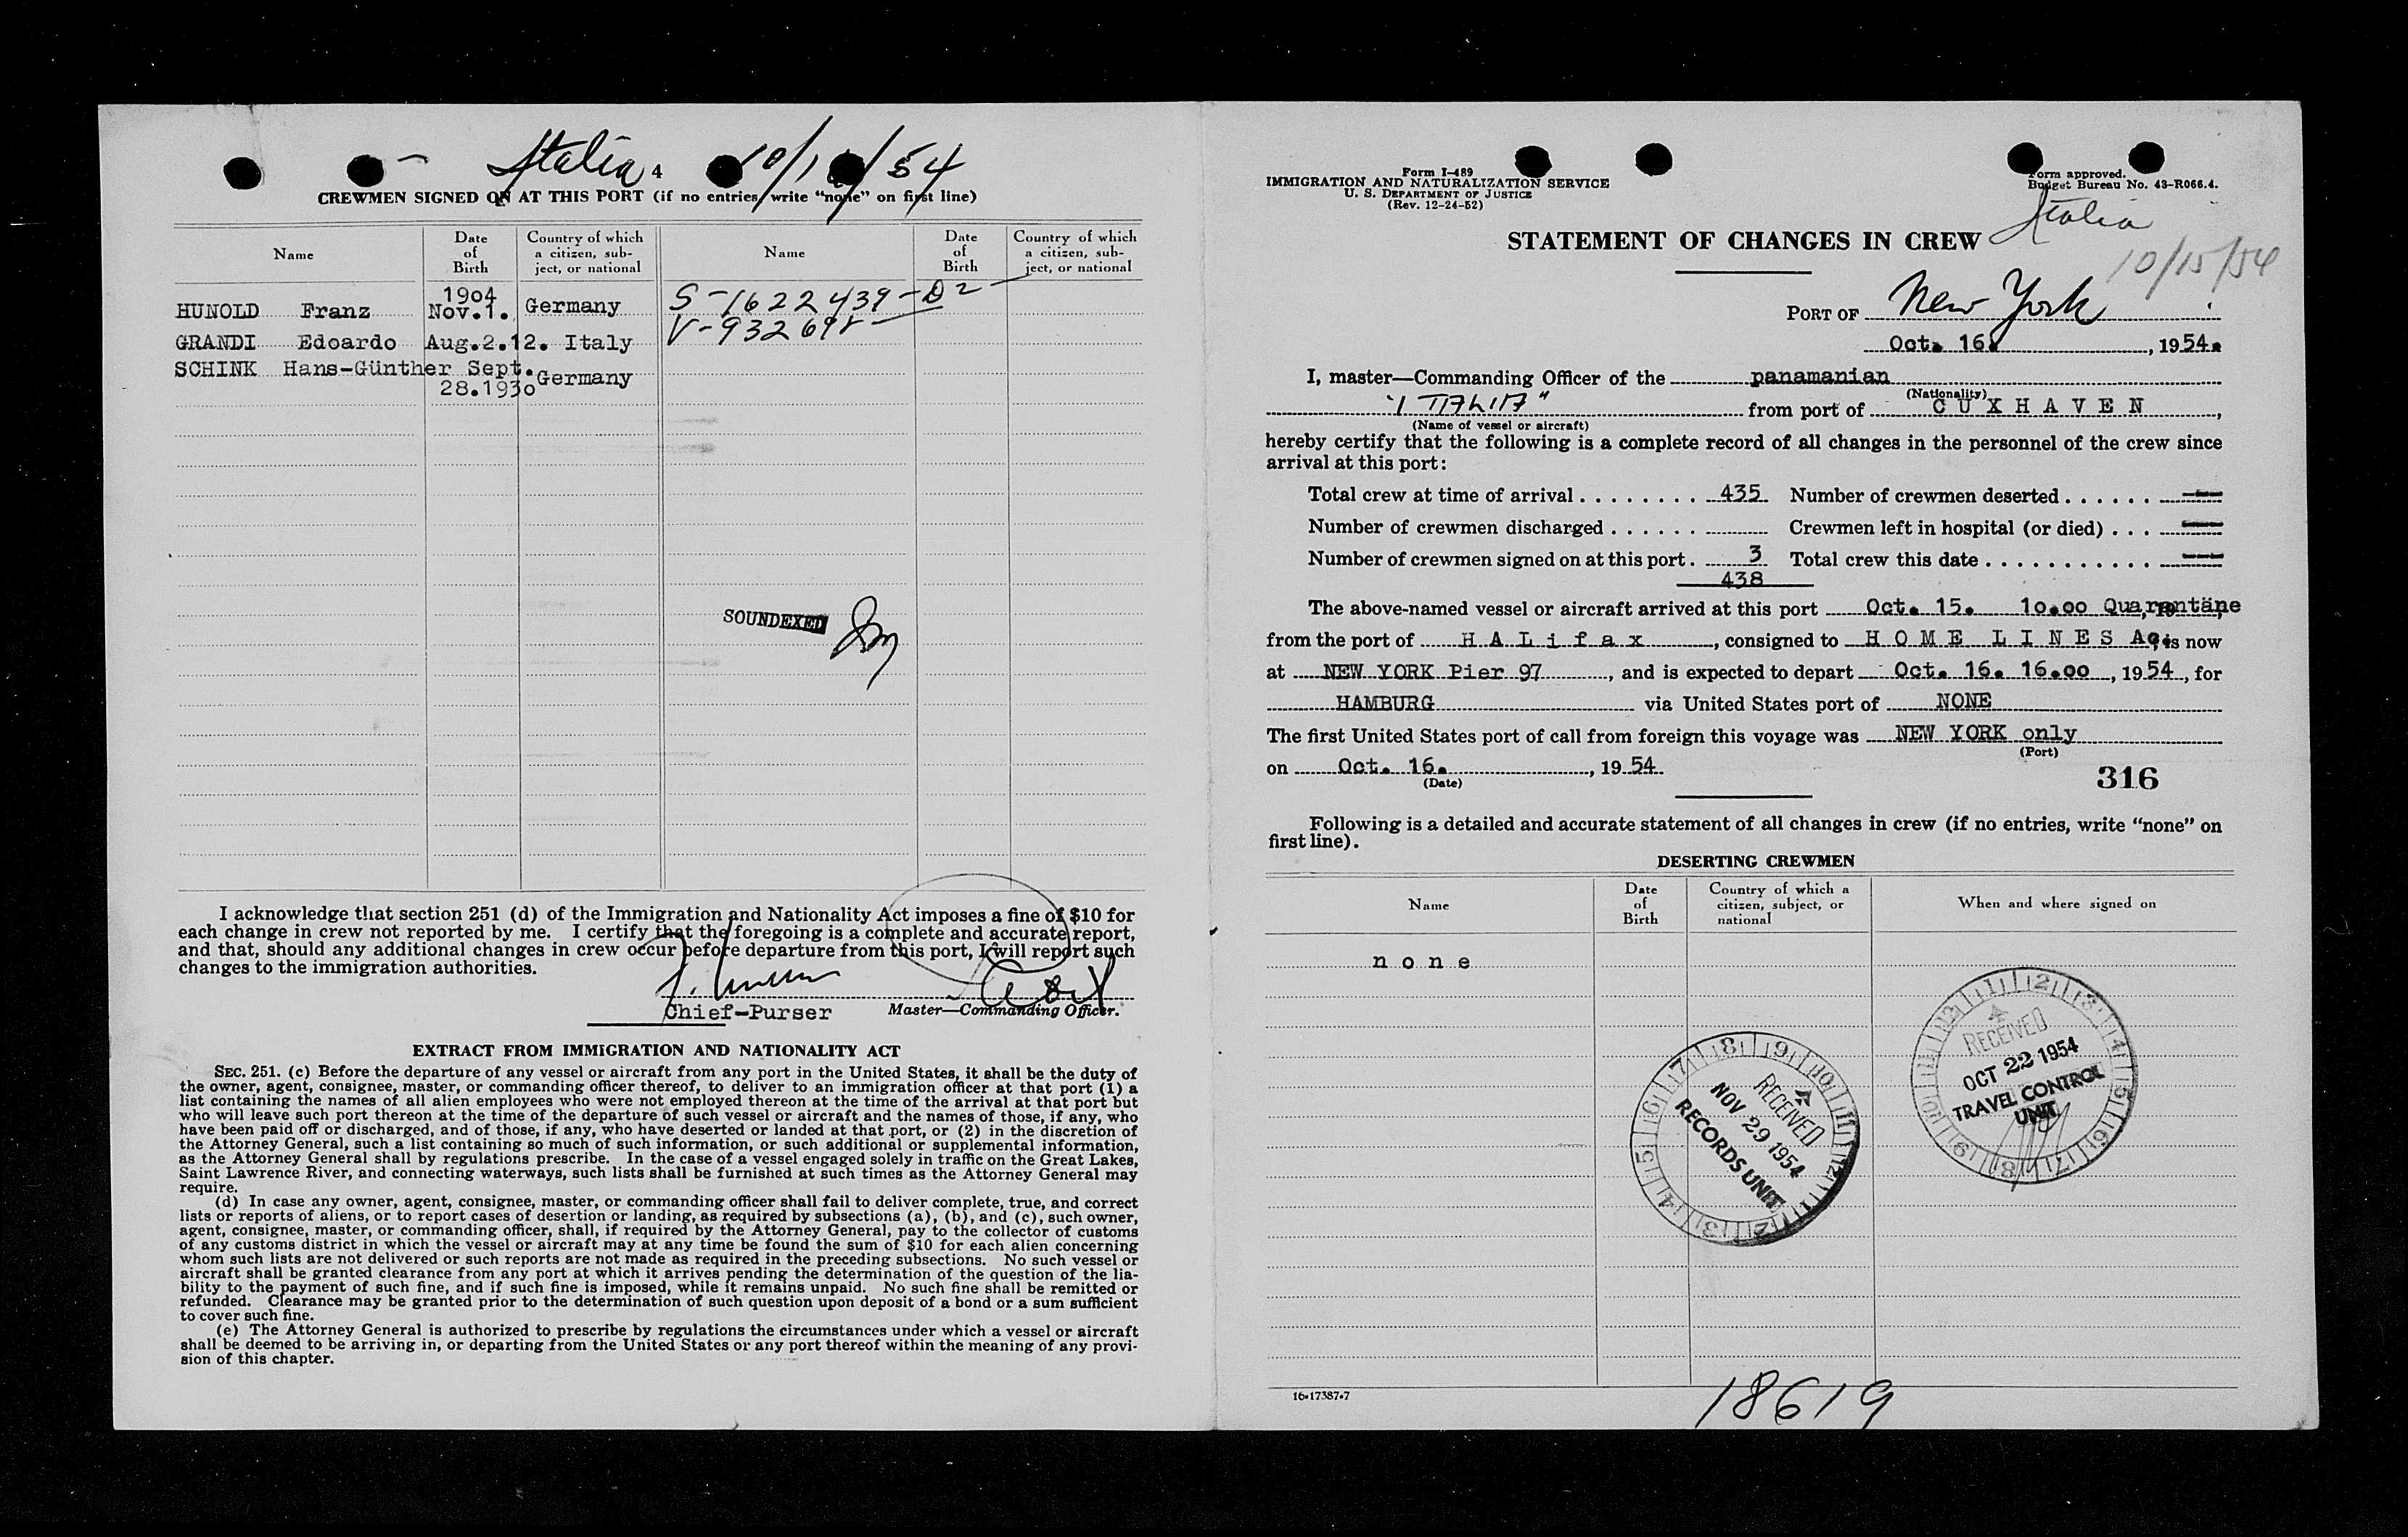 Italia 4 10/1 /54
CREWMEN SIGNED ON AT THIS PORT (if no entries write “none” on first line)
Name Date of Birth Country of which a citizen, subject, or national Name Date of Birth Country of which a citizen, subject, or national
HUNOLD Franz 1904 Nov.1. Germany S-1622439-D2
GRANDI Edoardo Aug.2.12. Italy V-932698
SCHINK Hans-Günther Sept. 28.1930 Germany
SOUNDEXED
I acknowledge that section 251 (d) of the Immigration and Nationality Act imposes a fine of $10 for
each change in crew not reported by me. I certify that the foregoing is a complete and accurate report,
and that, should any additional changes in crew occur before departure from this port, I will report such
changes to the immigration authorities.
Chief-Purser Master—Commanding Officer.
EXTRACT FROM IMMIGRATION AND NATIONALITY ACT
SEC. 251. (c) Before the departure of any vessel or aircraft from any port in the United States, it shall be the duty of
the owner, agent, consignee, master, or commanding officer thereof, to deliver to an immigration officer at that port (1) a
list containing the names of all alien employees who were not employed thereon at the time of the arrival at that port but
who will leave such port thereon at the time of the departure of such vessel or aircraft and the names of those, if any, who
have been paid off or discharged, and of those, if any, who have deserted or landed at that port, or (2) in the discretion of
the Attorney General, such a list containing so much of such information, or such additional or supplemental information,
as the Attorney General shall by regulations prescribe. In the case of a vessel engaged solely in traffic on the Great Lakes,
Saint Lawrence River, and connecting waterways, such lists shall be furnished at such times as the Attorney General may
require.
(d) In case any owner, agent, consignee, master, or commanding officer shall fail to deliver complete, true, and correct
lists or reports of aliens, or to report cases of desertion or landing, as required by subsections (a), (b), and (c), such owner,
agent, consignee, master, or commanding officer, shall, if required by the Attorney General, pay to the collector of customs
of any customs district in which the vessel or aircraft may at any time be found the sum of $10 for each alien concerning
whom such lists are not delivered or such reports are not made as required in the preceding subsections. No such vessel or
aircraft shall be granted clearance from any port at which it arrives pending the determination of the question of the lia-
bility to the payment of such fine, and if such fine is imposed, while it remains unpaid. No such fine shall be remitted or
refunded. Clearance may be granted prior to the determination of such question upon deposit of a bond or a sum sufficient
to cover such fine.
(e) The Attorney General is authorized to prescribe by regulations the circumstances under which a vessel or aircraft
shall be deemed to be arriving in, or departing from the United States or any port thereof within the meaning of any provi-
sion of this chapter.
Form I-489
IMMIGRATION AND NATURALIZATION SERVICE
U. S. DEPARTMENT OF JUSTICE
(Rev. 12-24-52)
Form approved.
Budget Bureau No. 43-R066.4.
Italia
STATEMENT OF CHANGES IN CREW
10/15/54
PORT OF New York
Oct. 16. , 1954.
I, master—Commanding Officer of the panamanian
(Nationality)
"ITALIA" from port of CUXHAVEN ,
(Name of vessel or aircraft)
hereby certify that the following is a complete record of all changes in the personnel of the crew since
arrival at this port:
Total crew at time of arrival . . . . . . . . 435 Number of crewmen deserted . . . . . . —
Number of crewmen discharged . . . . . . Crewmen left in hospital (or died) . . . —
Number of crewmen signed on at this port . 3 Total crew this date . . . . . . . . . . . —
438
The above-named vessel or aircraft arrived at this port Oct. 15. 10.00 Quarantäne, 19
from the port of HALifax , consigned to HOME LINES Ag. , is now
at NEW YORK Pier 97 , and is expected to depart Oct. 16. 16.00 , 1954 , for
HAMBURG via United States port of NONE
The first United States port of call from foreign this voyage was NEW YORK only
(Port)
on Oct. 16. , 1954
(Date)
316
Following is a detailed and accurate statement of all changes in crew (if no entries, write “none” on
first line).
DESERTING CREWMEN
Name Date of Birth Country of which a citizen, subject, or national When and where signed on
none
RECEIVED
OCT 22 1954
TRAVEL CONTROL
UNIT
RECEIVED
NOV 29 1954
RECORDS UNIT
16-17387-7
18619